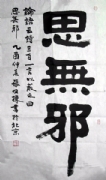 思無邪
論語 詩三百一言以蔽之曰
思無邪 乙酉仲夏 書於北京